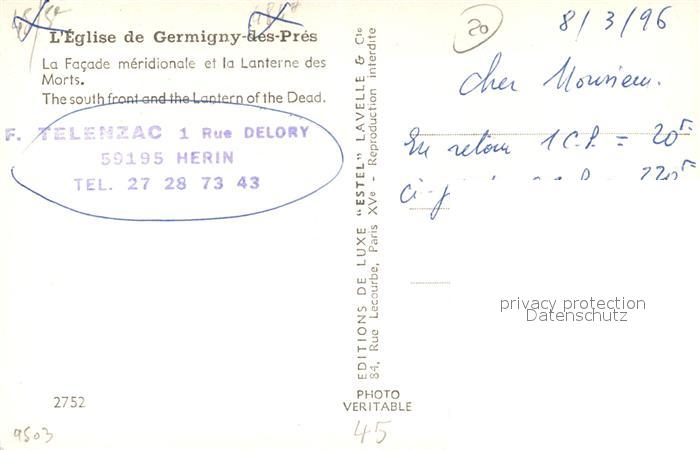 45/5
L'Église de Germigny-des-Prés
La Façade méridionale et la Lanterne des
Morts.
The south front and the Lantern of the Dead.
F. TELENZAC 1 Rue DELORY
59195 HERIN
TEL. 27 28 73 43
2752
9503
EDITIONS DE LUXE "ESTEL" LAVELLE & Cie
84, Rue Lecourbe, Paris XVe - Reproduction interdite
PHOTO
VERITABLE
45
20
8/3/96
Cher Monsieur.
En retour 1 C.P. = 20F
ci-j 220F
privacy protection
Datenschutz